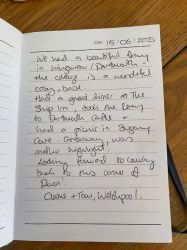 15/06/2025
We had a beautiful time
in Kingswear / Dartmouth,
the cottage is a wonderful
cosy base.
Had a great time at The
Ship Inn, took the ferry
to Dartmouth Castle +
had a picnic in Sugary
Cove. Greenway was
another highlight!
Looking forward to coming
back to this corner of
Devon.
Claire + Tom,